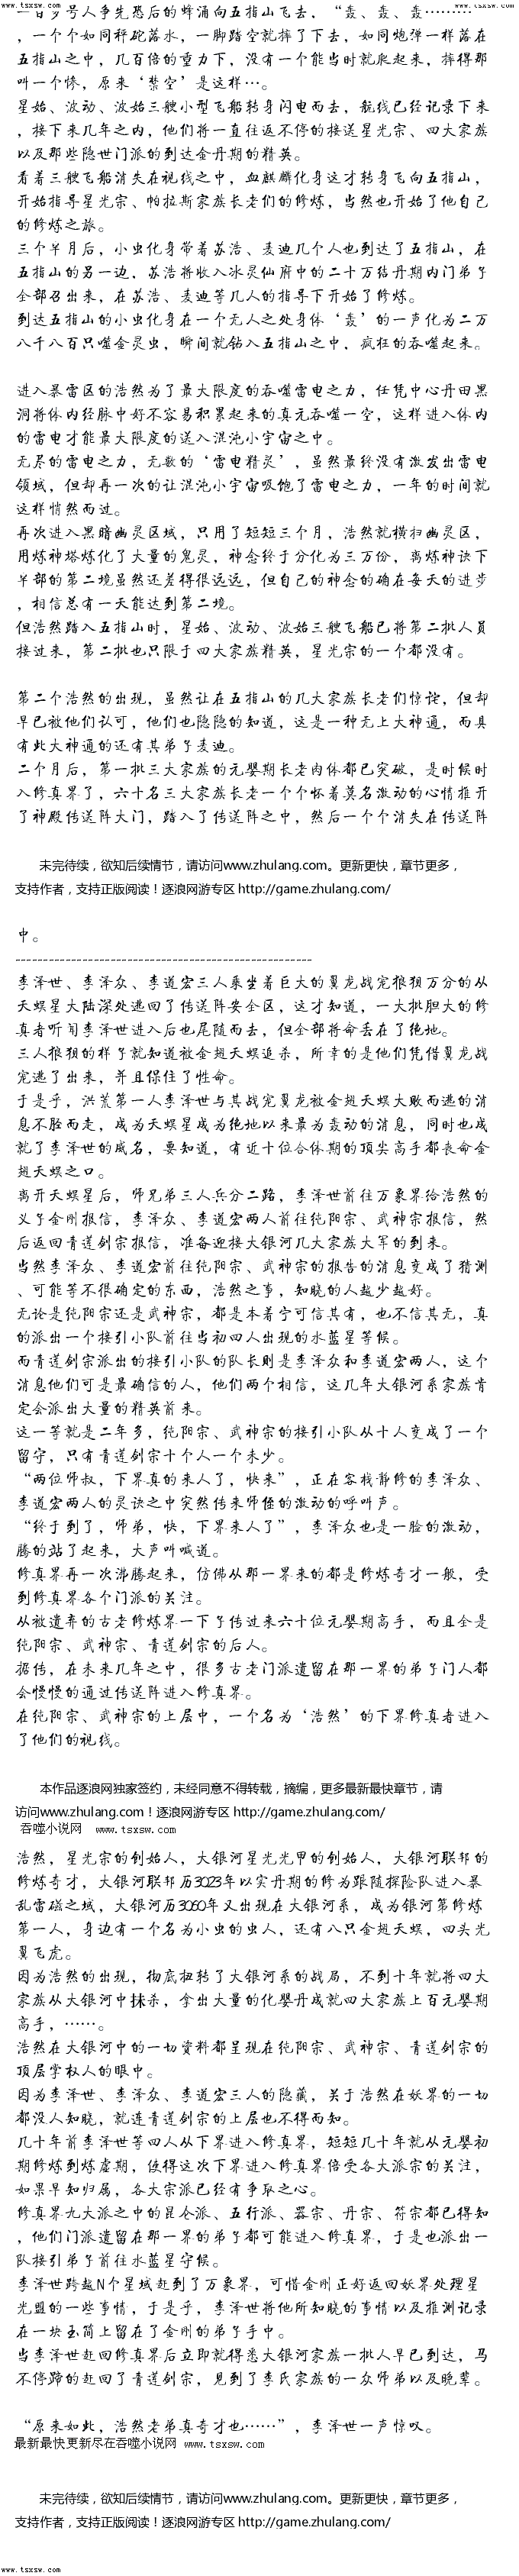 www.tsxsw.com www.tsxsw.com
一百多号人争先恐后的蜂涌向五指山飞去，“轰、轰、轰………
，一个个如同秤砣落水，一脚踏空就摔了下去，如同炮弹一样落在
五指山之中，几百倍的重力下，没有一个能当时就爬起来，摔得那
叫一个惨，原来‘禁空’是这样…。
星始、波动、波始三艘小型飞船转身闪电而去，航线已经记录下来
，接下来几年之内，他们将一直往返不停的接送星光宗、四大家族
以及那些隐世门派的到达金丹期的精英。
看着三艘飞船消失在视线之中，血麒麟化身这才转身飞向五指山，
开始指导星光宗、帕拉斯家族长老们的修炼，当然也开始了他自己
的修炼之旅。
三个半月后，小虫化身带着苏浩、麦迪几个人也到达了五指山，在
五指山的另一边，苏浩将收入冰灵仙府中的二十万结丹期内门弟子
全部召出来，在苏浩、麦迪等几人的指导下开始了修炼。
到达五指山的小虫化身在一个无人之处身体‘轰’的一声化为二万
八千八百只噬金灵虫，瞬间就钻入五指山之中，疯狂的吞噬起来。
进入暴雷区的浩然为了最大限度的吞噬雷电之力，任凭中心丹田黑
洞将体内经脉中好不容易积累起来的真元吞噬一空，这样进入体内
的雷电才能最大限度的送入混沌小宇宙之中。
无尽的雷电之力，无数的‘雷电精灵’，虽然最终没有激发出雷电
领域，但却再一次的让混沌小宇宙吸饱了雷电之力，一年的时间就
这样悄然而过。
再次进入黑暗幽灵区域，只用了短短三个月，浩然就横扫幽灵区，
用炼神塔炼化了大量的鬼灵，神念终于分化为三万份，离炼神诀下
半部的第二境虽然还差得很远远，但自己的神念的确在每天的进步
，相信总有一天能达到第二境。
但浩然踏入五指山时，星始、波动、波始三艘飞船已将第二批人员
接过来，第二批也只限于四大家族精英，星光宗的一个都没有。
第二个浩然的出现，虽然让在五指山的几大家族长老们惊诧，但却
早已被他们认可，他们也隐隐的知道，这是一种无上大神通，而具
有此大神通的还有其弟子麦迪。
二个月后，第一批三大家族的元婴期长老肉体都已突破，是时候时
入修真界了，六十名三大家族长老一个个怀着莫名激动的心情推开
了神殿传送阵大门，踏入了传送阵之中，然后一个个消失在传送阵
未完待续，欲知后续情节，请访问www.zhulang.com。更新更快，章节更多，
支持作者，支持正版阅读！逐浪网游专区 http://game.zhulang.com/
中。
------------------------------------------------------
李泽世、李泽众、李道宏三人乘坐着巨大的翼龙战宠狼狈万分的从
天蜈星大陆深处逃回了传送阵安全区，这才知道，一大批胆大的修
真者听闻李泽世进入后也尾随而去，但全部将命丢在了绝地。
三人狼狈的样子就知道被金翅天蜈追杀，所幸的是他们凭借翼龙战
宠逃了出来，并且保住了性命。
于是乎，洪荒第一人李泽世与其战宠翼龙被金翅天蜈大败而逃的消
息不胫而走，成为天蜈星成为绝地以来最为轰动的消息，同时也成
就了李泽世的威名，要知道，有近十位合体期的顶尖高手都丧命金
翅天蜈之口。
离开天蜈星后，师兄弟三人兵分二路，李泽世前往万象界给浩然的
义子金刚报信，李泽众、李道宏两人前往纯阳宗、武神宗报信，然
后返回青莲剑宗报信，准备迎接大银河几大家族大军的到来。
当然李泽众、李道宏前往纯阳宗、武神宗的报告的消息变成了猜测
、可能等不很确定的东西，浩然之事，知晓的人越少越好。
无论是纯阳宗还是武神宗，都是本着宁可信其有，也不信其无，真
的派出一个接引小队前往当初四人出现的水蓝星等候。
而青莲剑宗派出的接引小队的队长则是李泽众和李道宏两人，这个
消息他们可是最确信的人，他们两个相信，这几年大银河系家族肯
定会派出大量的精英前来。
这一等就是二年多，纯阳宗、武神宗的接引小队从十人变成了一个
留守，只有青莲剑宗十个人一个未少。
“两位师叔，下界真的来人了，快来”，正在客栈静修的李泽众、
李道宏两人的灵识之中突然传来师侄的激动的呼叫声。
“终于到了，师弟，快，下界来人了”，李泽众也是一脸的激动，
腾的站了起来，大声叫喊道。
修真界再一次沸腾起来，仿佛从那一界来的都是修炼奇才一般，受
到修真界各个门派的关注。
从被遗弃的古老修炼界一下子传过来六十位元婴期高手，而且全是
纯阳宗、武神宗、青莲剑宗的后人。
据传，在未来几年之中，很多古老门派遗留在那一界的弟子门人都
会慢慢的通过传送阵进入修真界。
在纯阳宗、武神宗的上层中，一个名为‘浩然’的下界修真者进入
了他们的视线。
本作品逐浪网独家签约，未经同意不得转载，摘编，更多最新最快章节，请
访问www.zhulang.com！逐浪网游专区 http://game.zhulang.com/
吞噬小说网 www.tsxsw.com
浩然，星光宗的创始人，大银河星光光甲的创始人，大银河联邦的
修炼奇才，大银河联邦历3023年以实丹期的修为跟随探险队进入暴
乱雷磁之域，大银河历3060年又出现在大银河系，成为银河第修炼
第一人，身边有一个名为小虫的虫人，还有八只金翅天蜈，四头光
翼飞虎。
因为浩然的出现，彻底扭转了大银河系的战局，不到十年就将四大
家族从大银河中抹杀，拿出大量的化婴丹成就四大家族上百元婴期
高手，……。
浩然在大银河中的一切资料都呈现在纯阳宗、武神宗、青莲剑宗的
顶层掌权人的眼中。
因为李泽世、李泽众、李道宏三人的隐藏，关于浩然在妖界的一切
都没人知晓，就连青莲剑宗的上层也不得而知。
几十年前李泽世等四人从下界进入修真界，短短几十年就从元婴初
期修炼到炼虚期，使得这次下界进入修真界倍受各大派宗的关注，
如果早知归属，各大宗派已经有争取之心。
修真界九大派之中的昆仑派、五行派、器宗、丹宗、符宗都已得知
，他们门派遗留在那一界的弟子都可能进入修真界，于是也派出一
队接引弟子前往水蓝星守候。
李泽世跨越N个星域赶到了万象界，可惜金刚正好返回妖界处理星
光盟的一些事情，于是乎，李泽世将他所知晓的事情以及推测记录
在一块玉简上留在了金刚的弟子手中。
当李泽世赶回修真界后立即就得悉大银河家族一批人早已到达，马
不停蹄的赶回了青莲剑宗，见到了李氏家族的一众师弟以及晚辈。
“原来如此，浩然老弟真奇才也……”，李泽世一声惊叹。
最新最快更新尽在吞噬小说网 www.tsxsw.com
未完待续，欲知后续情节，请访问www.zhulang.com。更新更快，章节更多，
支持作者，支持正版阅读！逐浪网游专区 http://game.zhulang.com/
www.tsxsw.com www.tsxsw.com